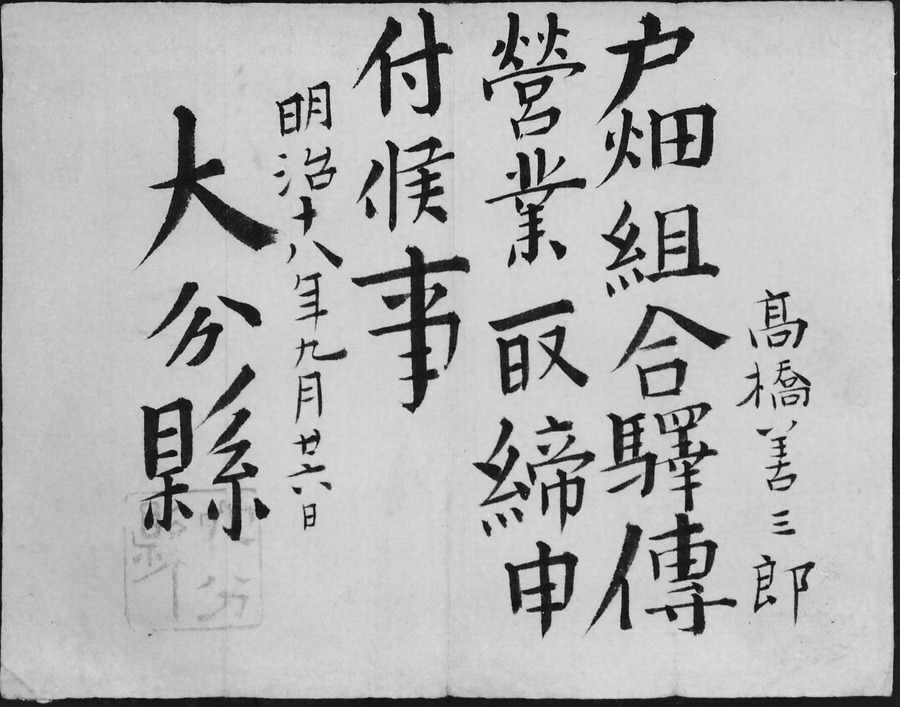 髙橋善三郎
戸畑組合驛傳
營業取締申
付候事
明治十八年九月廿六日
大分縣